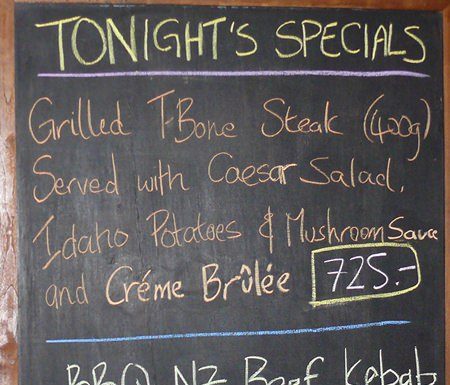 TONIGHT'S SPECIALS
Grilled T-Bone Steak (400g)
Served with Caesar Salad,
Idaho Potatoes & Mushroom Sauce
and Créme Brûlée 725.-
BBQ NZ Beef Kebab